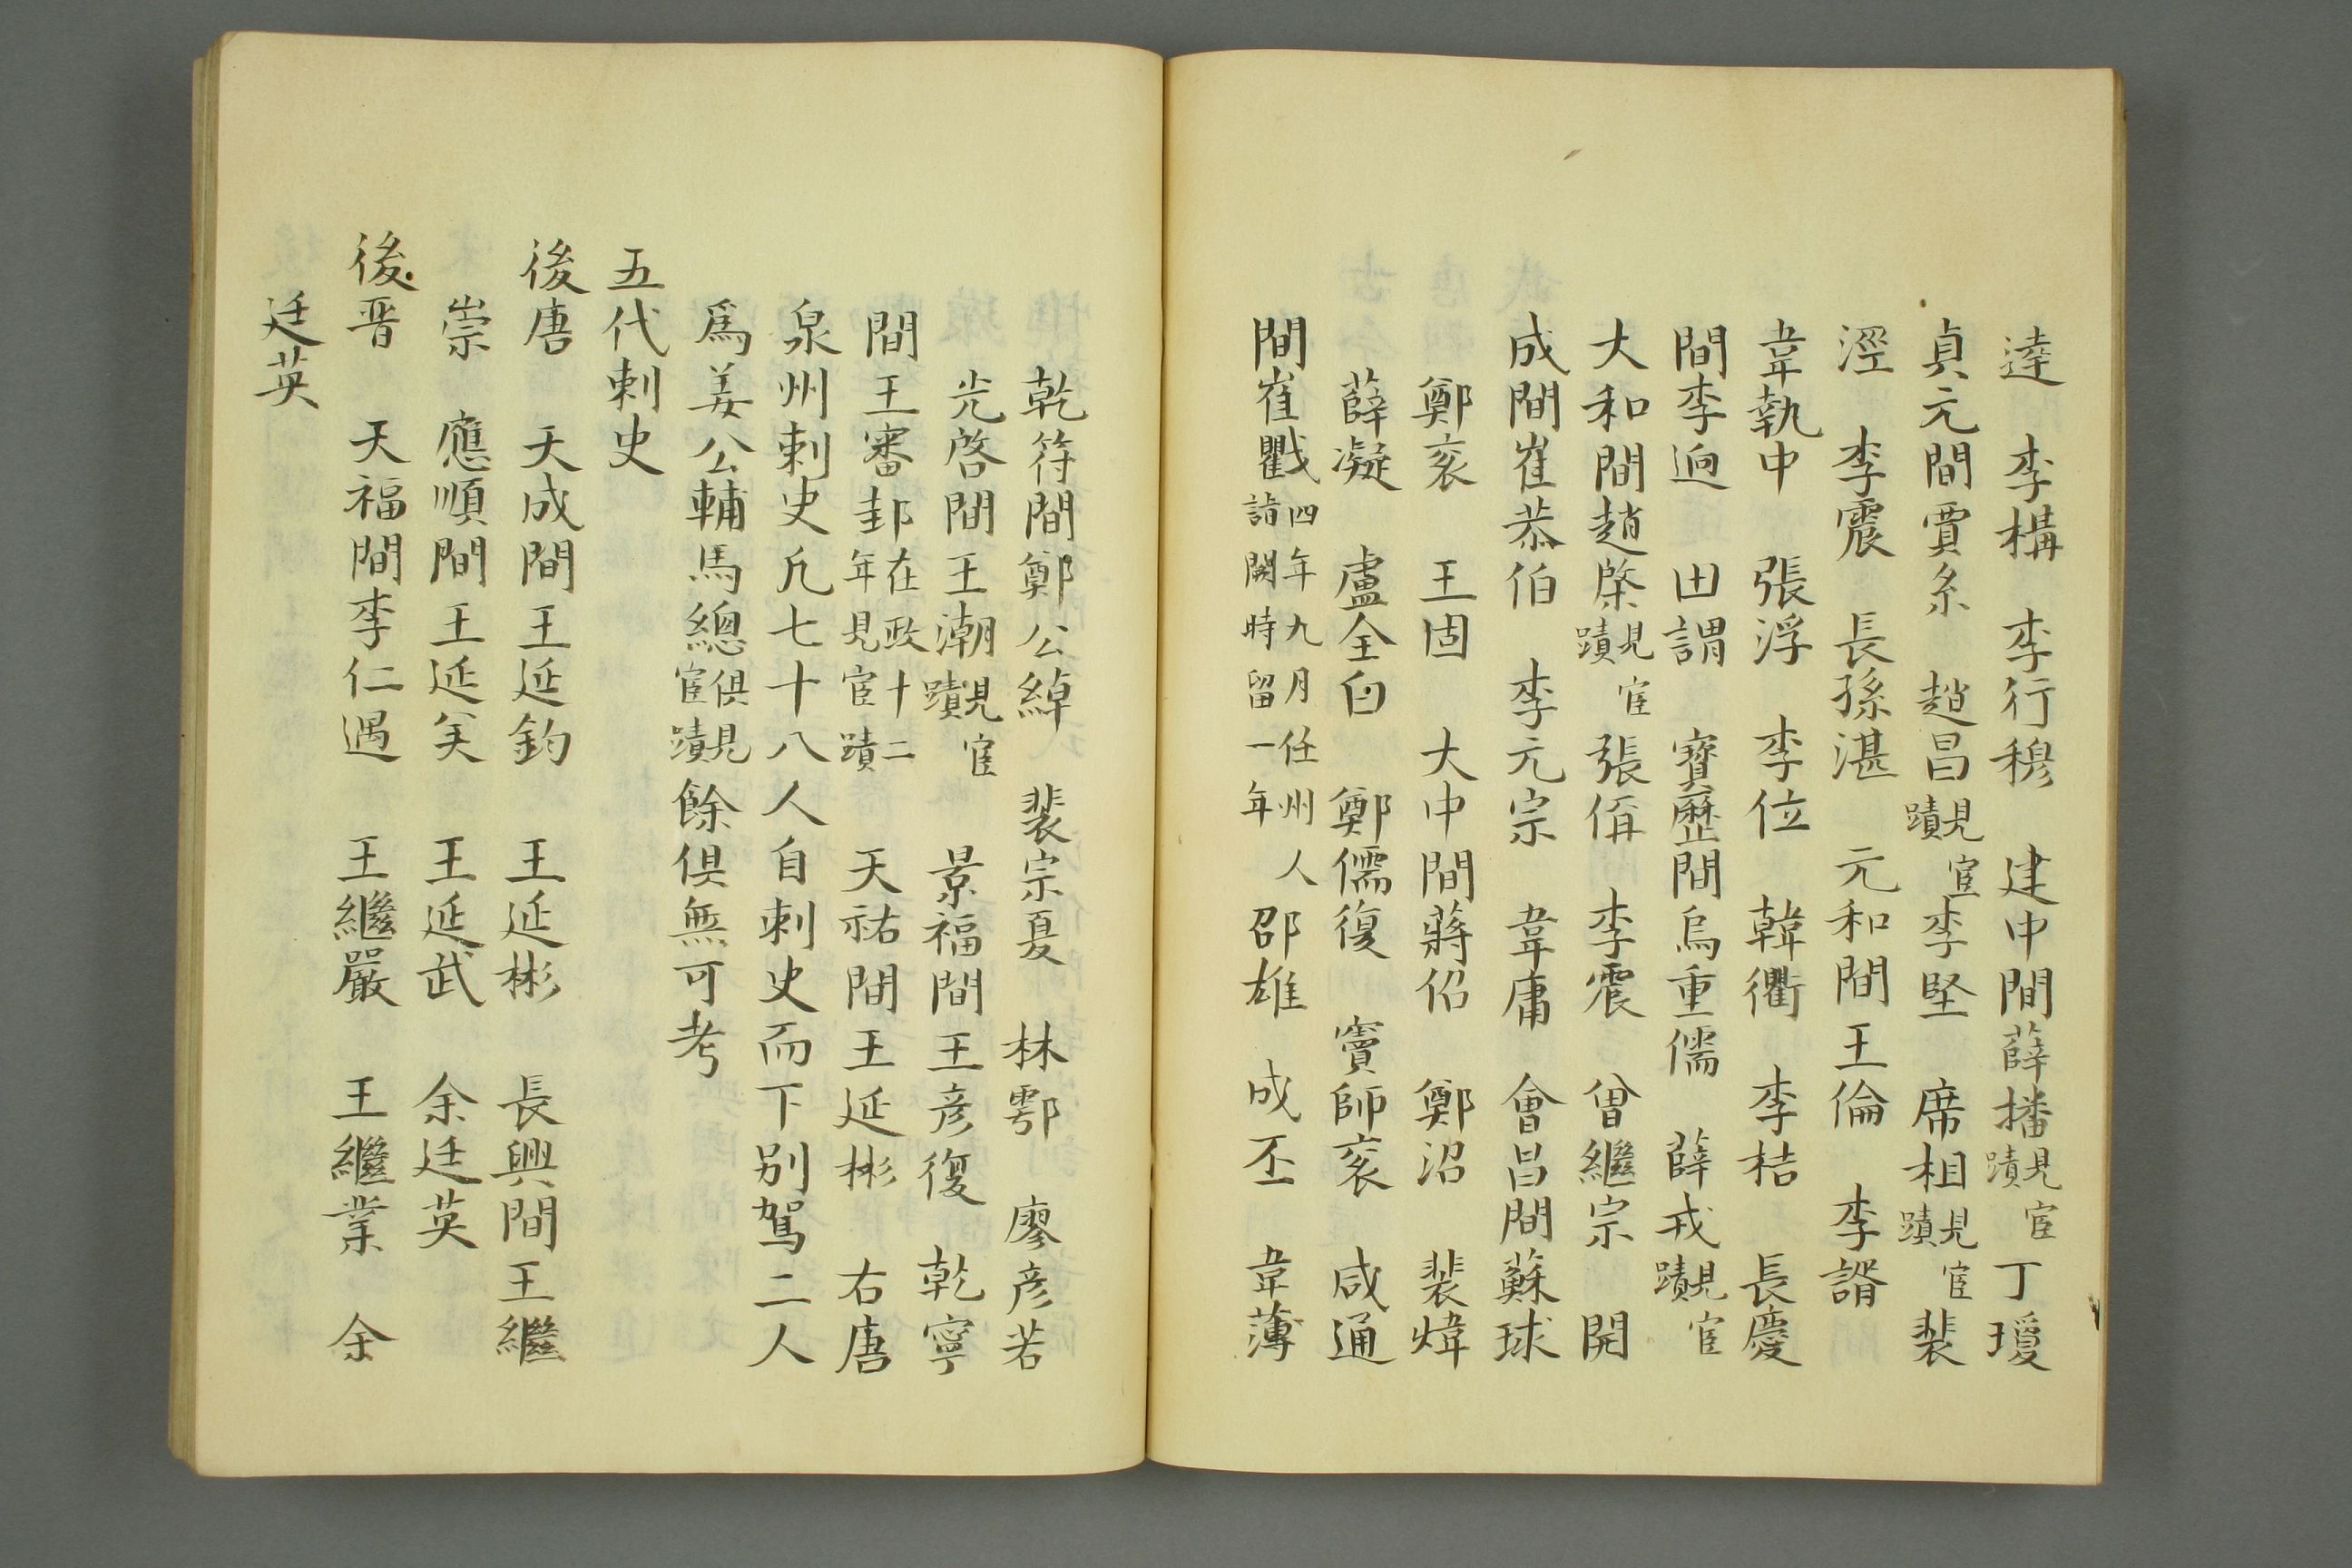 逵　李構　李行穆　建中間薛播見宦蹟丁瓊
貞元間賈糸　趙昌見宦蹟李堅　席相見宦蹟裴
涇　李震　長孫湛　元和間王倫　李諝
韋執中　張浮　李位　韓衢　李桔　長慶
間李逈　田謂　寶歷間烏重儒　薛戎見宦蹟
大和間趙棨見宦蹟張偁　李震　曾繼宗　開
成間崔恭伯　李元宗　韋庸　會昌間蘇球
鄭衮　王固　大中間蔣伈　鄭沼　裴煒
薛凝　盧全白　鄭儒復　竇師衮　咸通
間崔戵四年九月任州人詣闕時留一年邵雄　成丕　韋薄
乾符間鄭公綽　裴宗夏　林鄠　廖彦若
光啓間王潮見宦蹟　景福間王彦復　乾寧
間王審邽在政十二年見宦蹟　天祐間王延彬　右唐
泉州刺史凡七十八人自刺史而下别駕二人
爲姜公輔馬總俱見宦蹟餘俱無可考
五代刺史
後唐　天成間王延鈞　王延彬　長興間王繼
崇　應順間王延羙　王延武　余廷英
後晋　天福間李仁遇　王繼嚴　王繼業　余
廷英